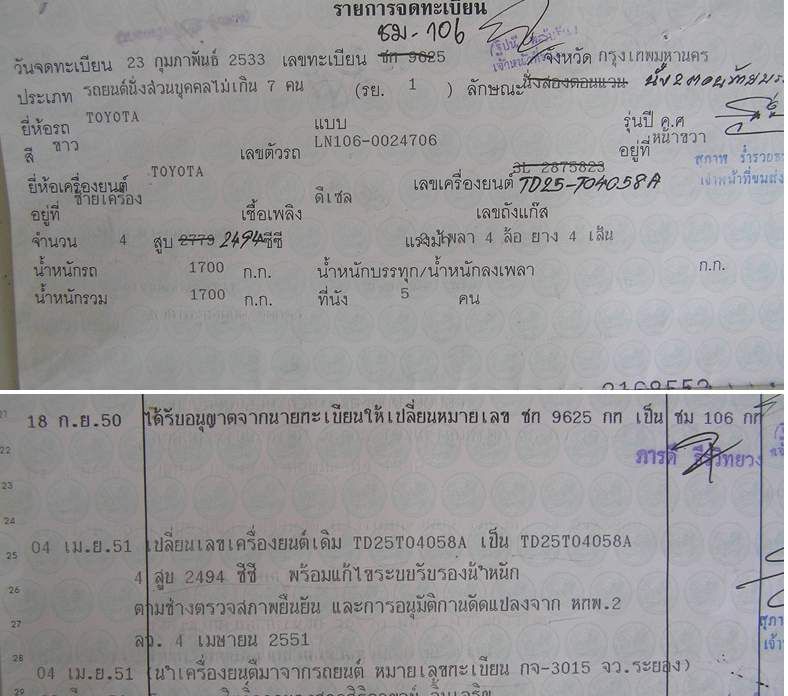 รายการจดทะเบียน
ชม-106
วันจดทะเบียน 23 กุมภาพันธ์ 2533 เลขทะเบียน ชก 9625 จังหวัด กรุงเทพมหานคร
ประเภท รถยนต์นั่งส่วนบุคคลไม่เกิน 7 คน (รย. 1 ) ลักษณะ นั่งสองตอนแวน
ยี่ห้อรถ TOYOTA แบบ รุ่นปี ค.ศ
สี ขาว เลขตัวรถ LN106-0024706 อยู่ที่ หน้าขวา
ยี่ห้อเครื่องยนต์ TOYOTA เลขเครื่องยนต์ 3L 2875823 TD25-T04058A
อยู่ที่ ซ้ายเครื่อง เชื้อเพลิง ดีเซล เลขถังแก๊ส
จำนวน 4 สูบ 2779 2494 ซีซี แรงม้า เพลา 4 ล้อ ยาง 4 เส้น
น้ำหนักรถ 1700 ก.ก. น้ำหนักบรรทุก/น้ำหนักลงเพลา ก.ก.
น้ำหนักรวม 1700 ก.ก. ที่นั่ง 5 คน
21 18 ก.ย.50 ได้รับอนุญาตจากนายทะเบียนให้เปลี่ยนหมายเลข ชก 9625 กท เป็น ชม 106 กท
22
23
24
25 04 เม.ย.51 เปลี่ยนเลขเครื่องยนต์เดิม TD25T04058A เป็น TD25T04058A
4 สูบ 2494 ซีซี พร้อมแก้ไขระบบรับรองน้ำหนัก
26
ตามช่างตรวจสภาพยืนยัน และการอนุมัติการดัดแปลงจาก หทพ.2
27
ลว. 4 เมษายน 2551
28 04 เม.ย.51 (นำเครื่องยนต์มาจากรถยนต์ หมายเลขทะเบียน กจ-3015 จว.ระยอง)
29